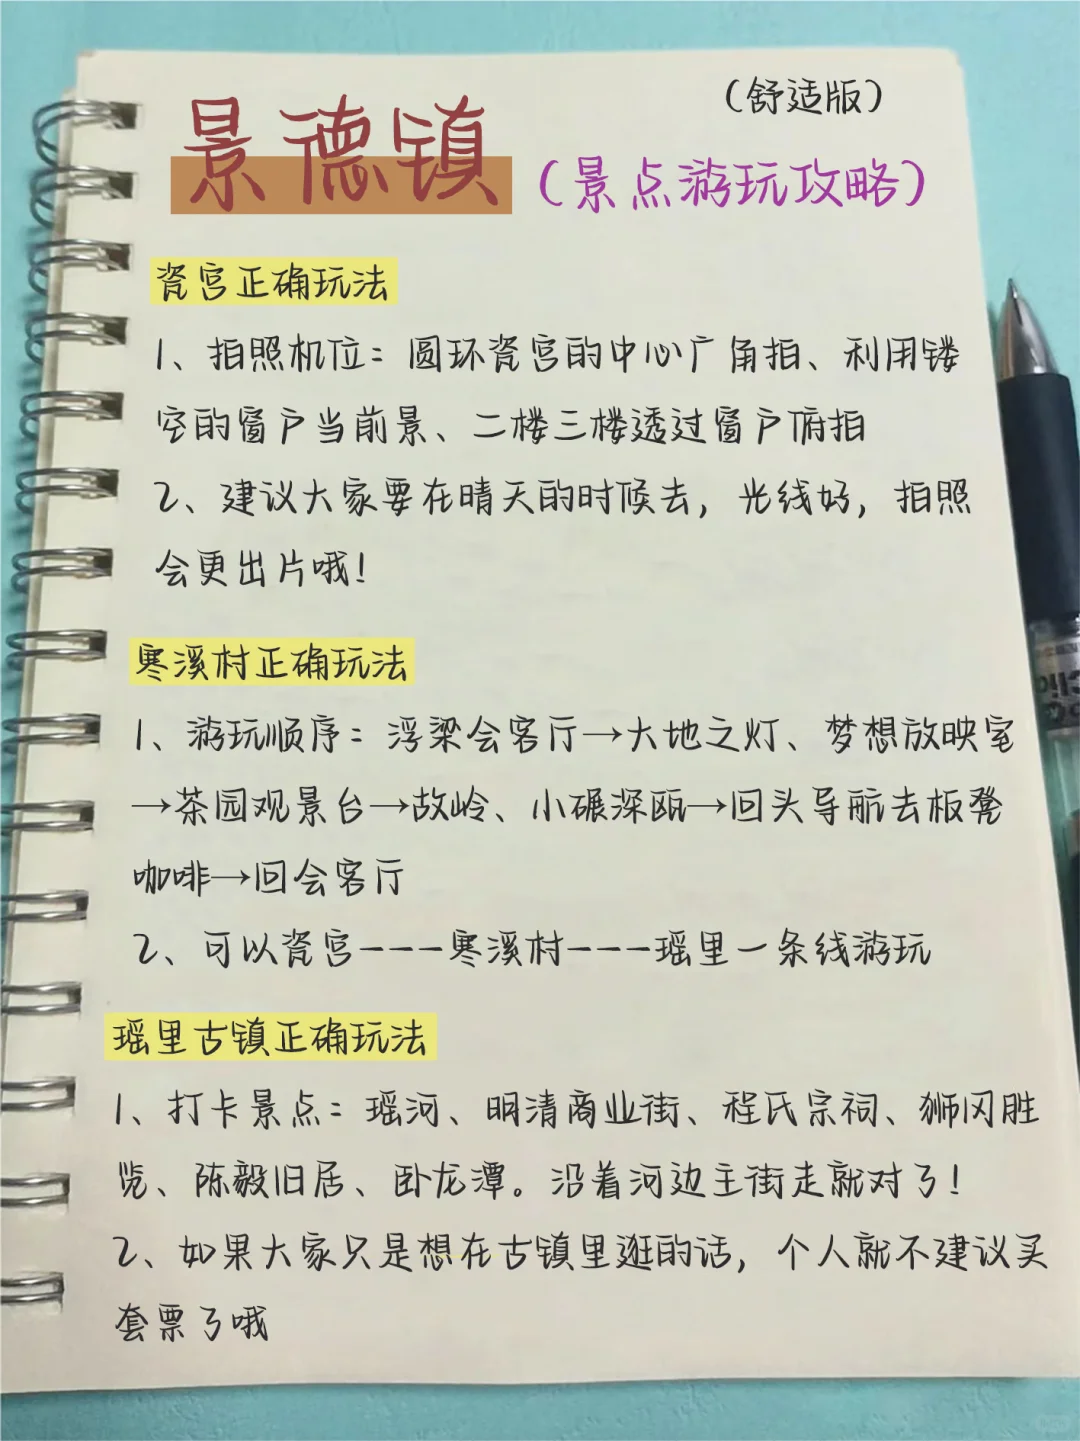 （舒适版）
景德镇（景点游玩攻略）
瓷宫正确玩法
1、拍照机位：圆环瓷宫的中心广角拍、利用镂
空的窗户当前景、二楼三楼透过窗户俯拍
2、建议大家要在晴天的时候去，光线好，拍照
会更出片哦！
寒溪村正确玩法
1、游玩顺序：浮梁会客厅→大地之灯、梦想放映室
→茶园观景台→故岭、小碾深瓯→回头导航去板凳
咖啡→回会客厅
2、可以瓷宫---寒溪村---瑶里一条线游玩
瑶里古镇正确玩法
1、打卡景点：瑶河、明清商业街、程氏宗祠、狮冈胜
览、陈毅旧居、卧龙潭。沿着河边主街走就对了！
2、如果大家只是想在古镇里逛的话，个人就不建议买
套票了哦